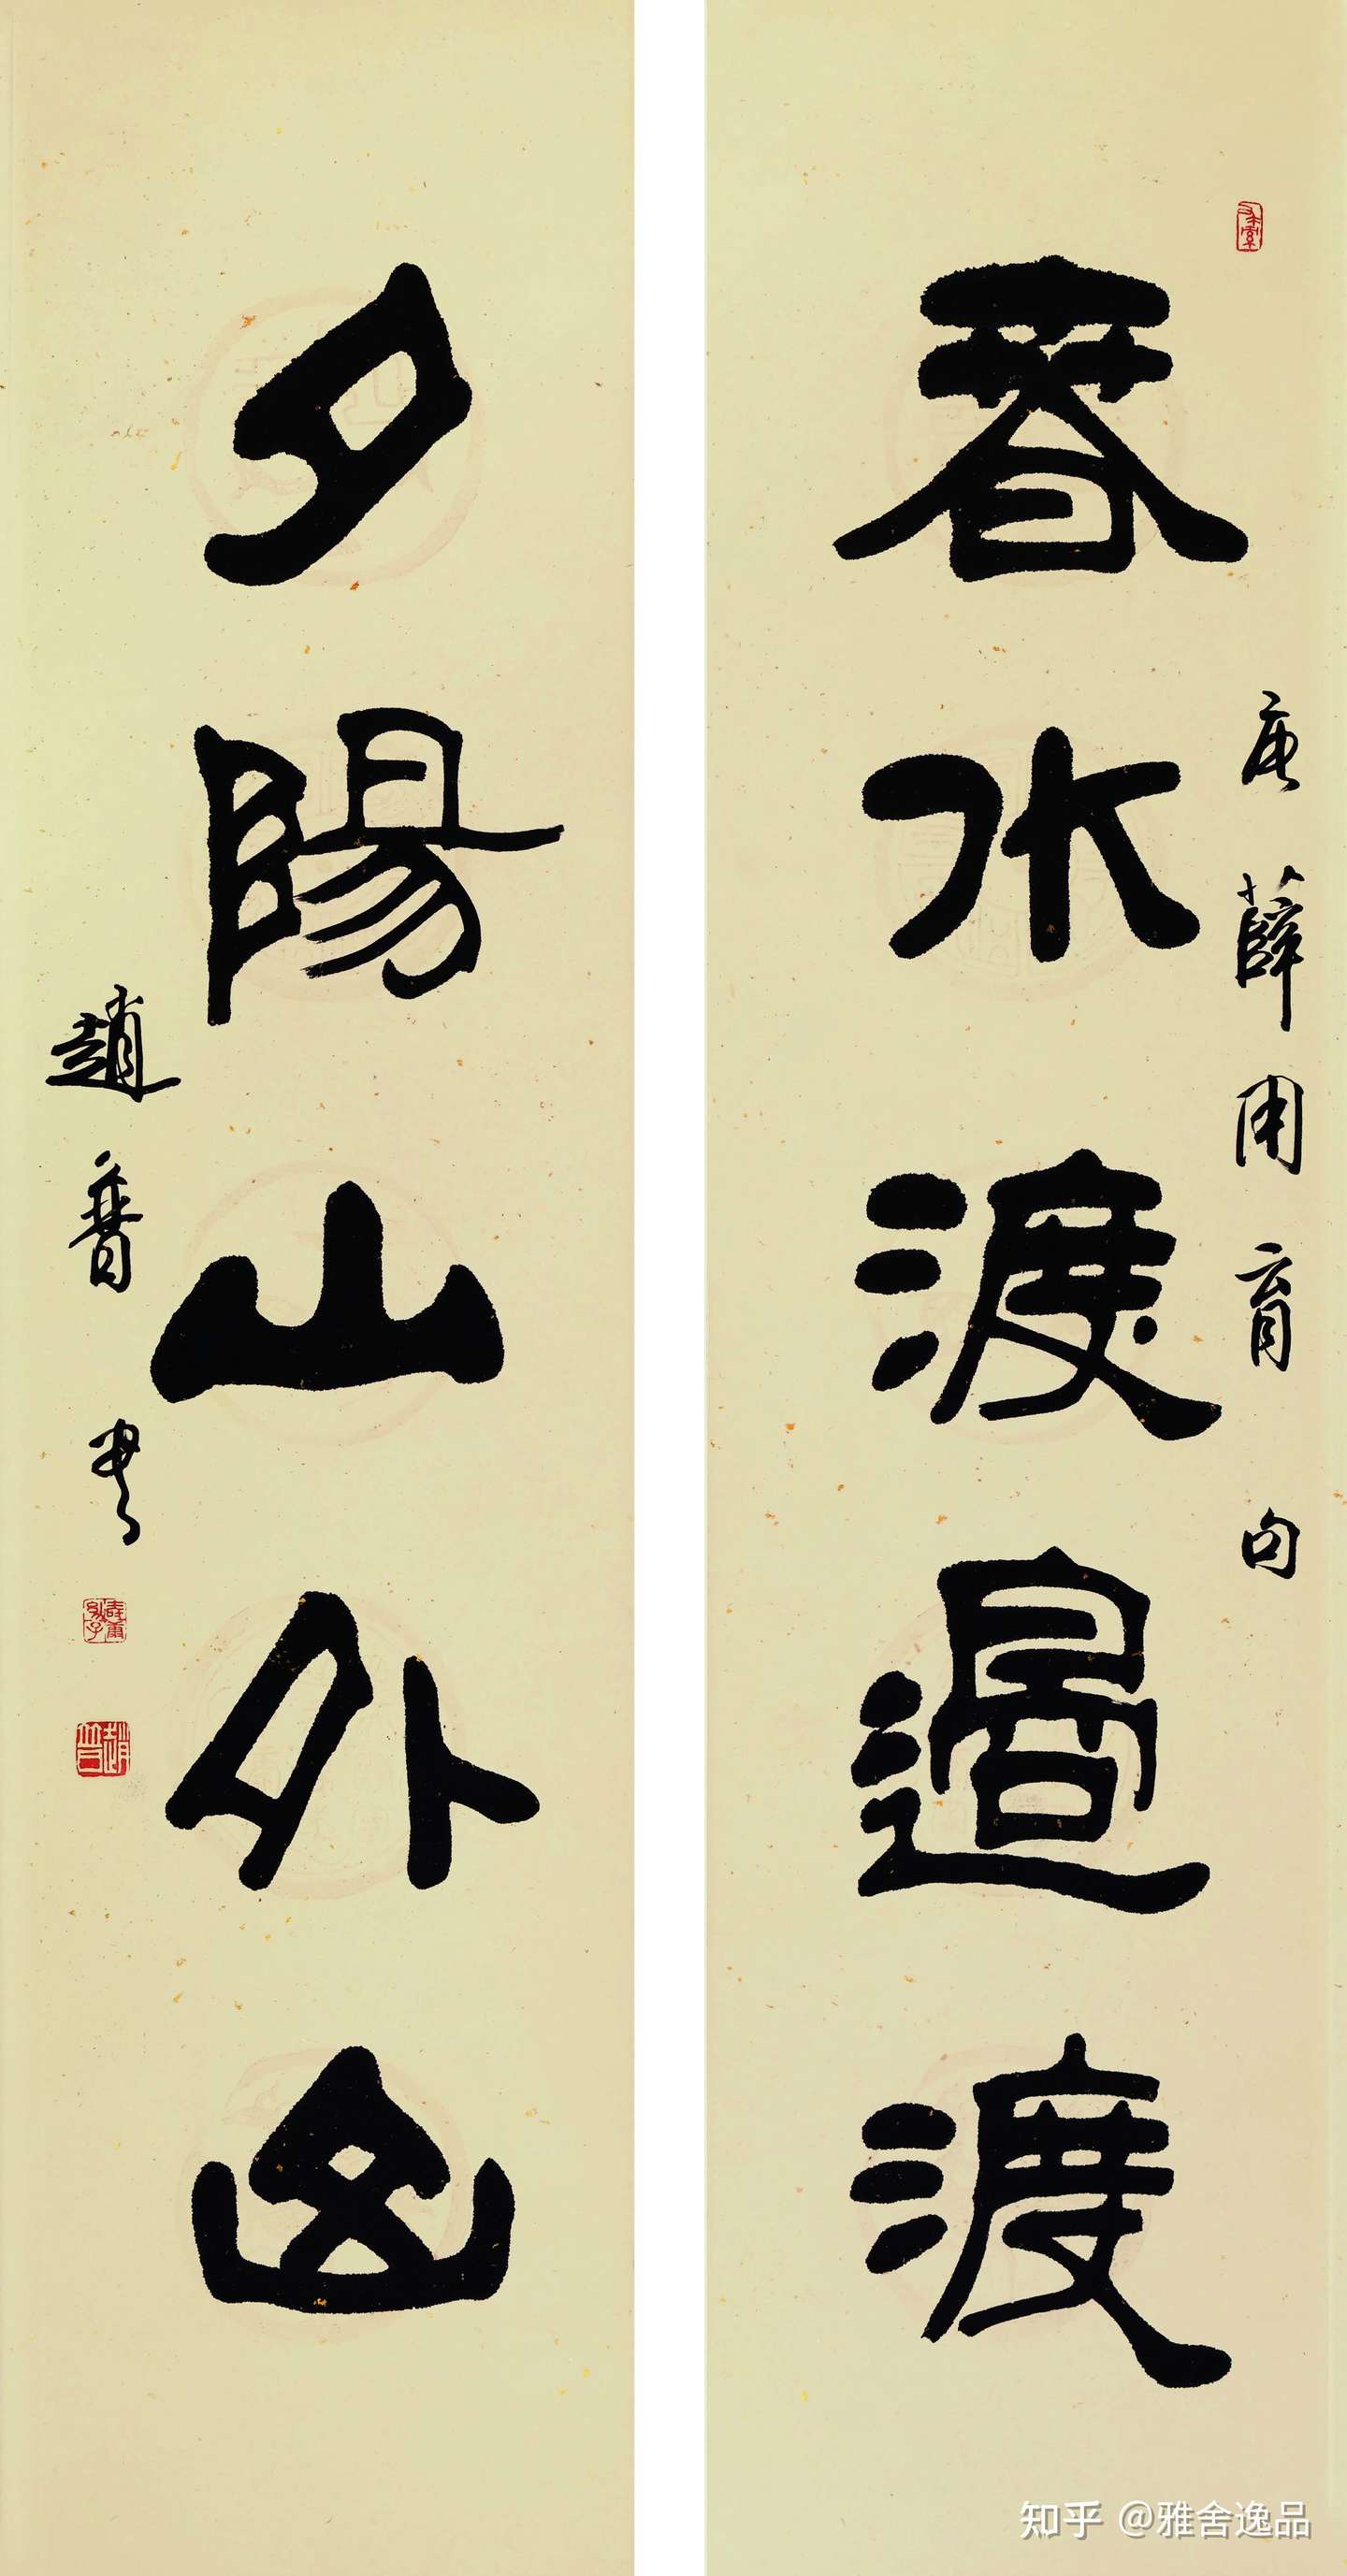 唐薛用育句
春水渡過渡
夕陽山外
趙普書
趙普
知乎 @雅舍逸品